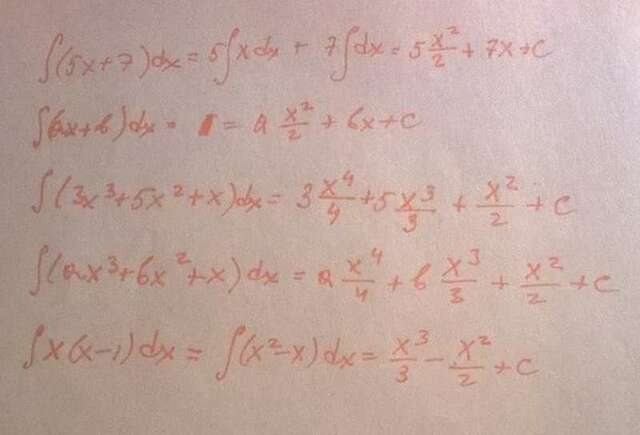 ∫(5x+7)dx = 5∫xdx + 7∫dx = 5 x²/2 + 7x + C
∫(ax+b)dx = = a x²/2 + bx + C
∫(3x³+5x²+x)dx = 3 x⁴/4 + 5 x³/3 + x²/2 + C
∫(ax³+bx²+x)dx = a x⁴/4 + b x³/3 + x²/2 + C
∫x(x-1)dx = ∫(x²-x)dx = x³/3 - x²/2 + C